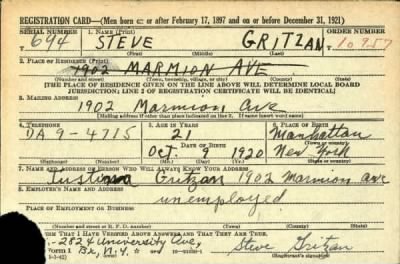 REGISTRATION CARD—(Men born on or after February 17, 1897 and on or before December 31, 1921)
SERIAL NUMBER 1. NAME (Print) ORDER NUMBER
694 STEVE GRITZAN 10957
(First) (Middle) (Last)
2. PLACE OF RESIDENCE (Print)
1902 MARMION AVE
(Number and street) (Town, township, village, or city) (County) (State)
[THE PLACE OF RESIDENCE GIVEN ON THE LINE ABOVE WILL DETERMINE LOCAL BOARD
JURISDICTION; LINE 2 OF REGISTRATION CERTIFICATE WILL BE IDENTICAL]
3. MAILING ADDRESS
1902 Marmion Ave
[Mailing address if other than place indicated on line 2. If same insert word same]
4. TELEPHONE 5. AGE IN YEARS 6. PLACE OF BIRTH
DA 9-4715 21 Manhattan
DATE OF BIRTH (Town or county)
Oct. 9 1920 New York
(Exchange) (Number) (Mo.) (Day) (Yr.) (State or country)
7. NAME AND ADDRESS OF PERSON WHO WILL ALWAYS KNOW YOUR ADDRESS
Gritzan 1902 Marmion ave
8. EMPLOYER'S NAME AND ADDRESS
unemployed
PLACE OF EMPLOYMENT OR BUSINESS
(Number and street or R. F. D. number) (Town) (County) (State)
THAT I HAVE VERIFIED ABOVE ANSWERS AND THAT THEY ARE TRUE.
2824 University Ave,
Bx, N.Y. Steve Gritzan
(Registrant's signature)